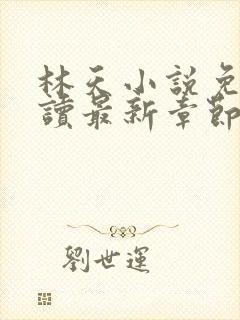 林天小說免
讀最新章節
劉世運